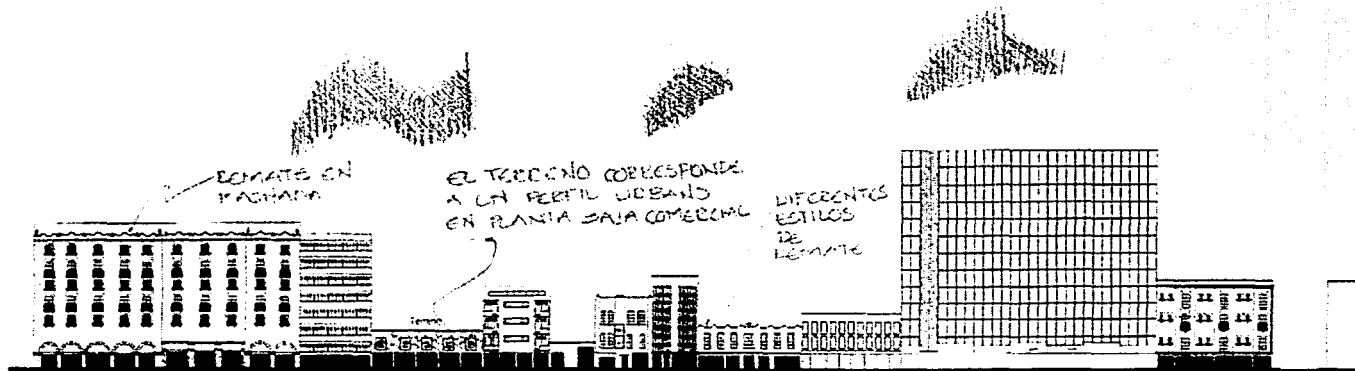 REMATE EN
FACHADA
EL TERRENO CORRESPONDE
A UN PERFIL URBANO
EN PLANTA BAJA COMERCIAL
DIFERENTES
ESTILOS
DE
REMATE